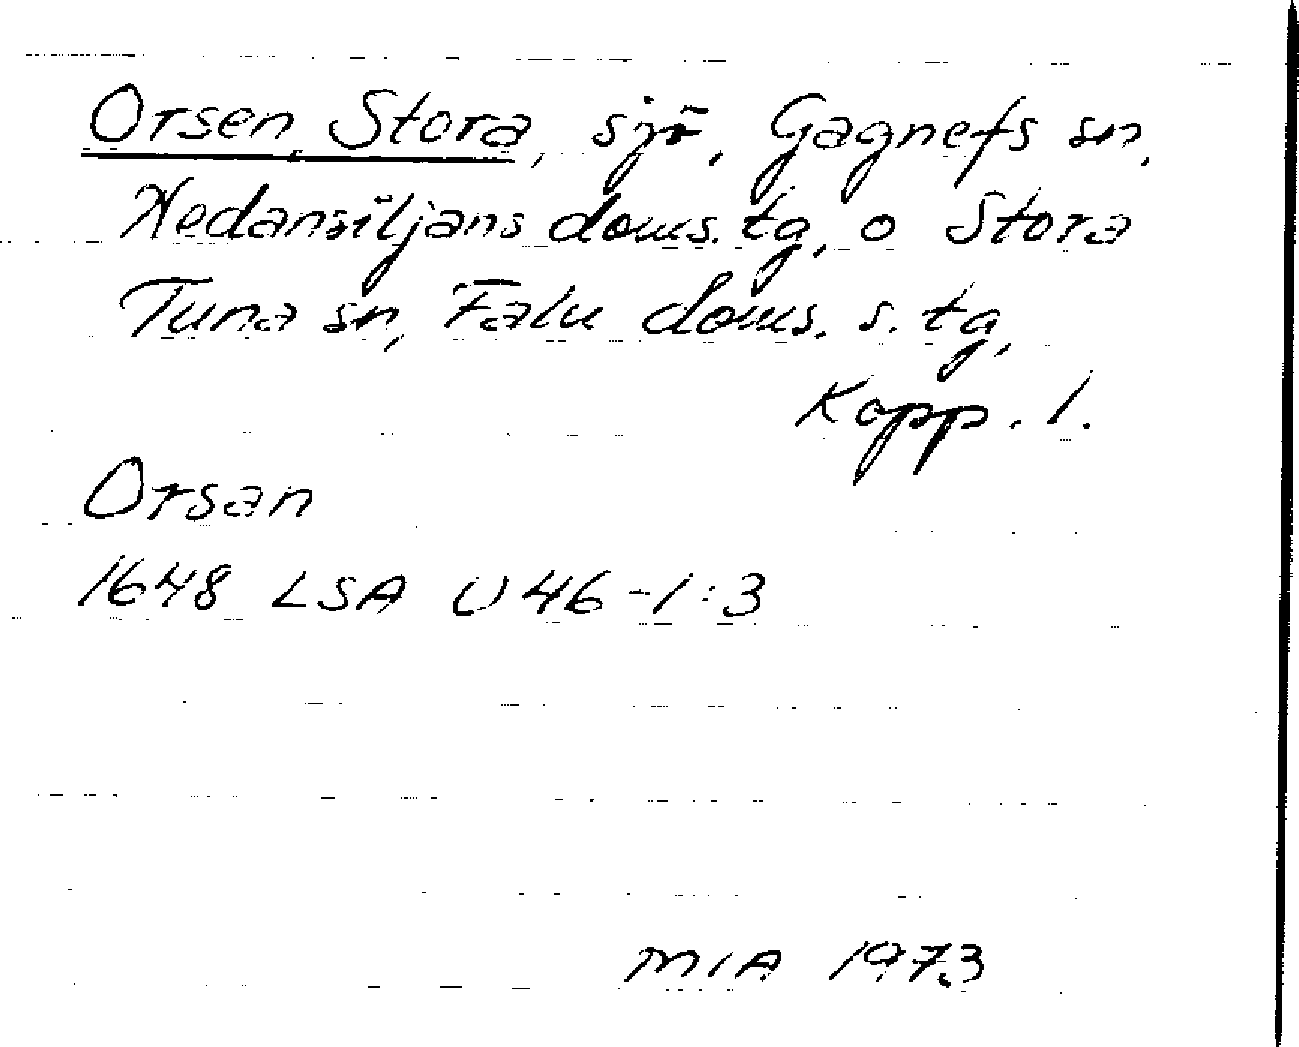 Orsen, Stora, sjö, Gagnefs sn,
Nedansiljans doms. tg, o Stora
Tuna sn, Falu doms. s. tg,
Kopp. l.
Orsan
1648 LSA U 46-1:3
MIA 1973